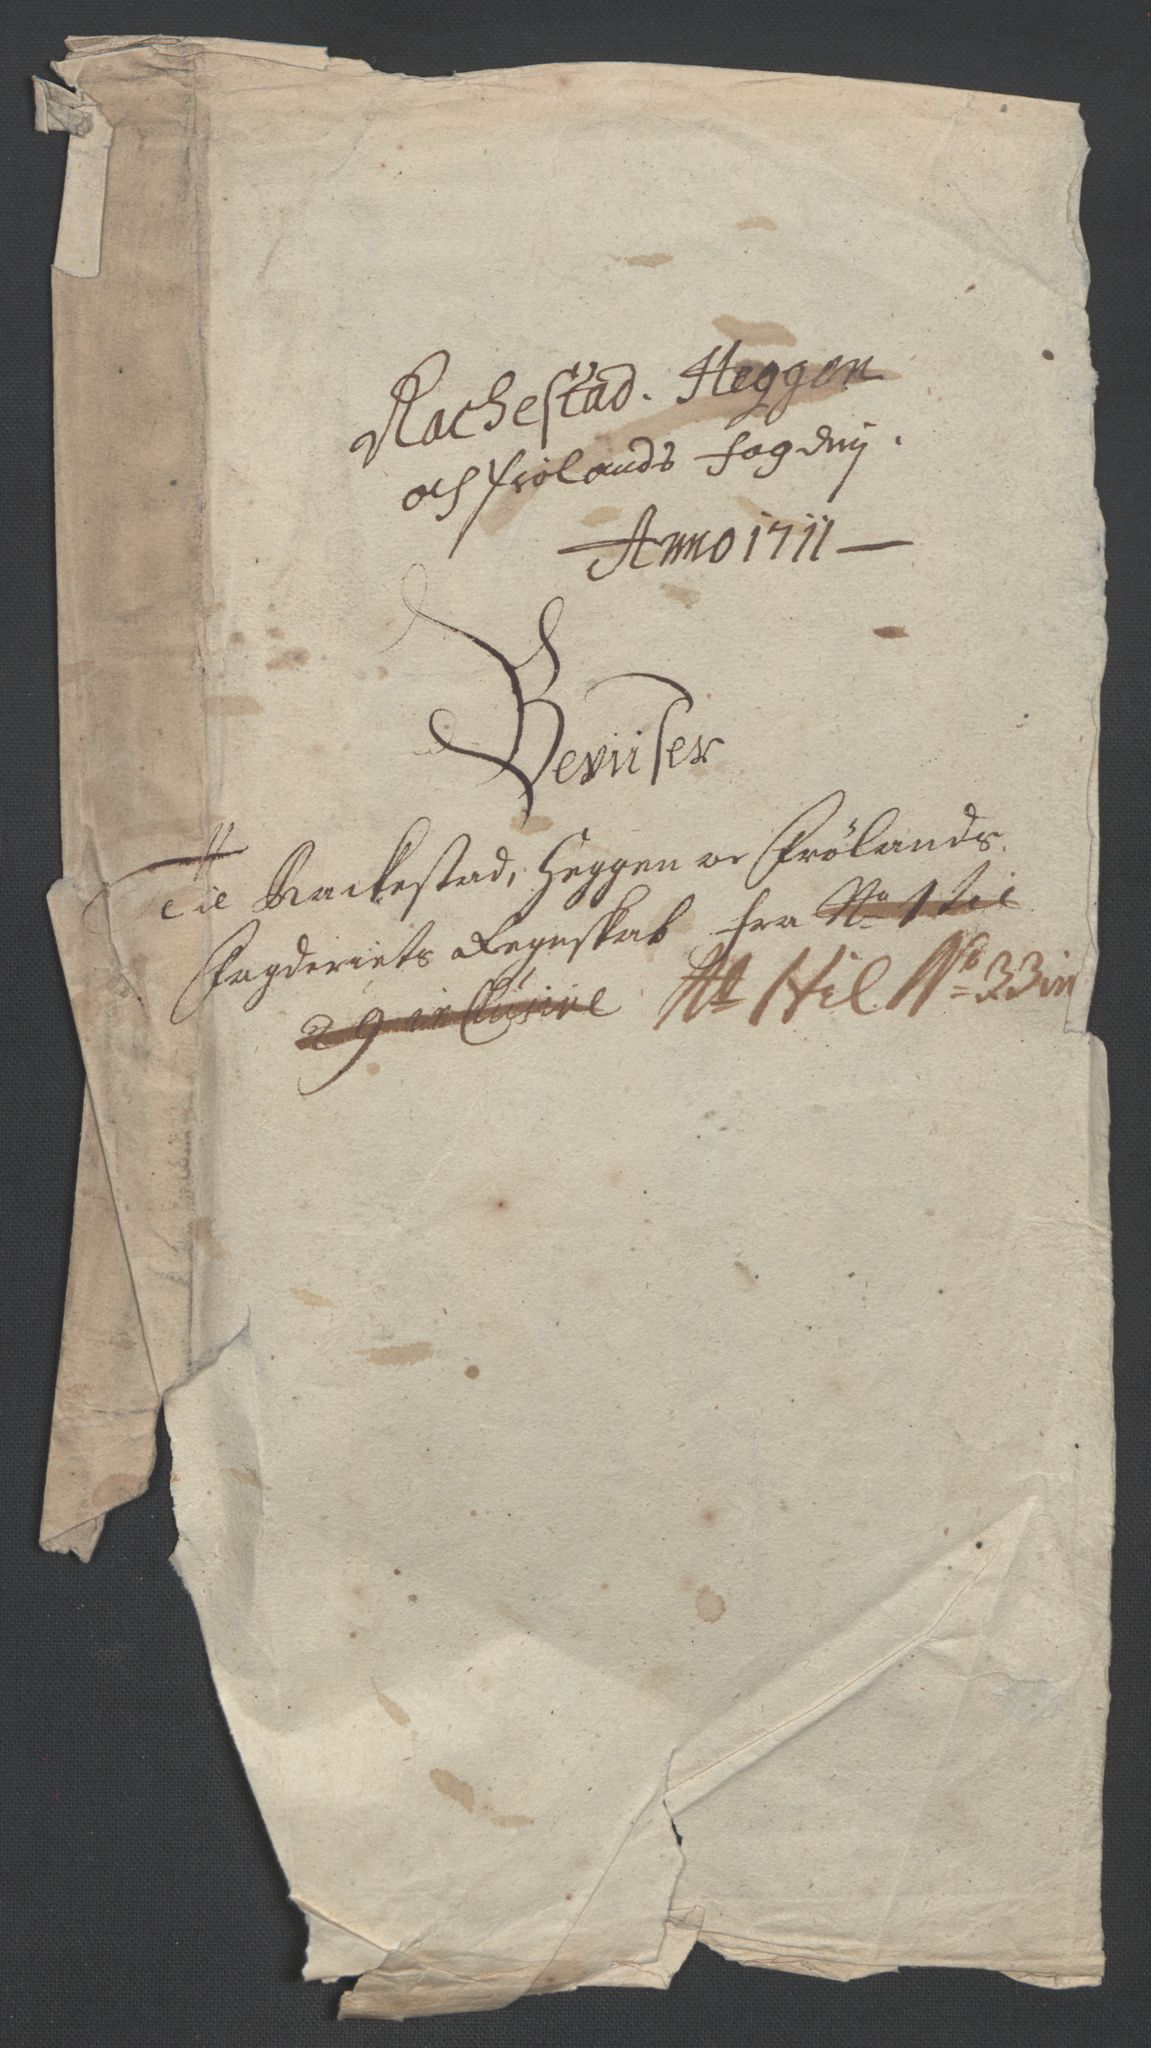 Rachestad. Heggen
och Frølands fogdrij.
Anno 1711
Beviiser
Til Rackestad, Heggen oc Frølands
Fogderiets Regnskab fra No 1 til
29 inclusive No 1 til No 33 in